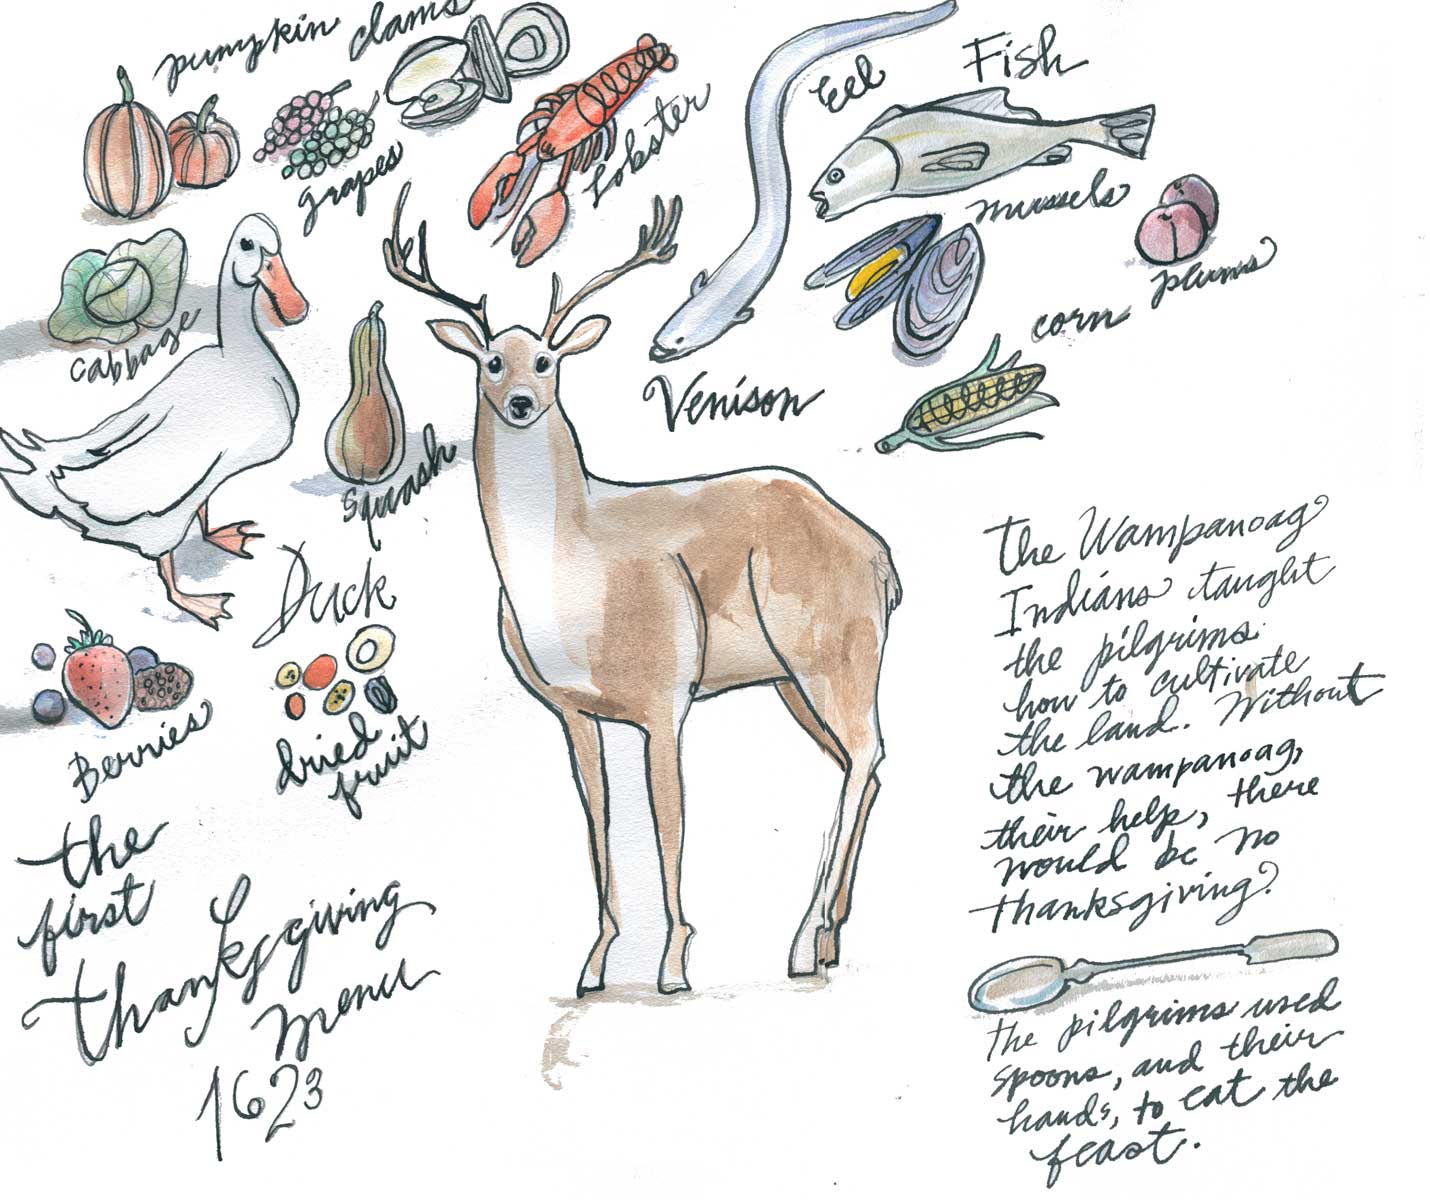 pumpkin
clams
grapes
Lobster
Eel
Fish
mussels
plums
corn
Venison
cabbage
squash
Duck
Berries
dried
fruit
the
first
Thanksgiving
Menu
1623
The Wampanoag
Indians taught
the pilgrims
how to cultivate
the land. Without
the wampanoag,
their help, there
would be no
thanksgiving?
The pilgrims used
spoons, and their
hands, to eat the
feast.